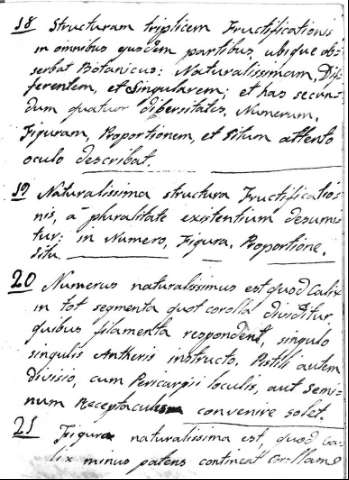 18 Structuram triplicem Fructificationis
in omnibus ejusdem partibus, ubique obs
servat Botanicus: Naturalissimam, Dif-
ferentem, et Singularem; et has secun-
dum quatuor diversitates, Numerum,
Figuram, Proportionem, et Situm attento
oculo describat.
19 Naturalissima structura Fructificatio
nis, a pluralitate existentium desumi
tur: in Numero, Figura, Proportione,
situ
20 Numerus naturalissimus est quod Calix
in tot segmenta quot corolla dividitur
quibus filamenta respondent, singulo
singulis Antheris instructo, Pistili autem
divisio, cum Pericarpii loculis, aut Semi-
num Receptaculis convenire solet.
21 Figura naturalissima est, quod Ca-
lix minus patens contineat Corollam